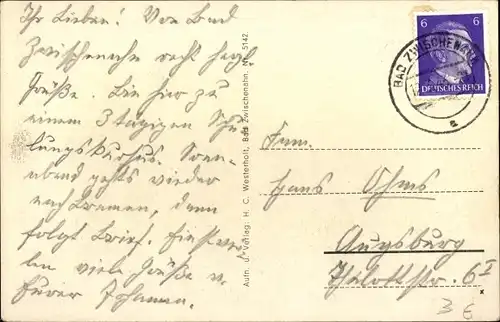 Ihr Lieben! Von Bad
Zwischenahn recht herzl.
Grüße. Bin hier zu
einem 3 tägigen Schu-
lungskursus. Sonn-
abend gehts wieder
nach Bremen, dann
folgt Brief. Einstwei-
len viele Grüße v.
Eurer Johanna.
Aufn. u. Verlag: H. C. Westerholt, Bad Zwischenahn. Nr. 5142.
6 6
DEUTSCHES REICH
BAD ZWISCHENAHN
a
Fam.
Hans Ohms
Augsburg
str. 6 I
3 €